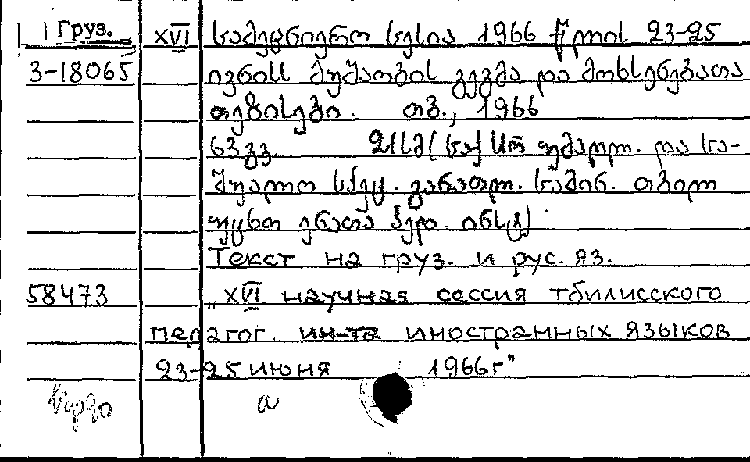 Груз. XVI სამეცნიერო სესია 1966 წლის 23-25
3-18065 ივნისს მუშაობის გეგმა და მოხსენებათა
თეზისები. თბ., 1966
63 გვ. 21სმ (საქ სსრ უმაღლ. და სა-
შუალო სპეც. განათლ. სამინ. თბილ
უცხო ენათა პედ. ინსტ)
Текст на груз. и рус. яз.
58473 „XVI научная сессия тбилисского
педагог. ин-та иностранных языков
23-25 июня 1966г"
а